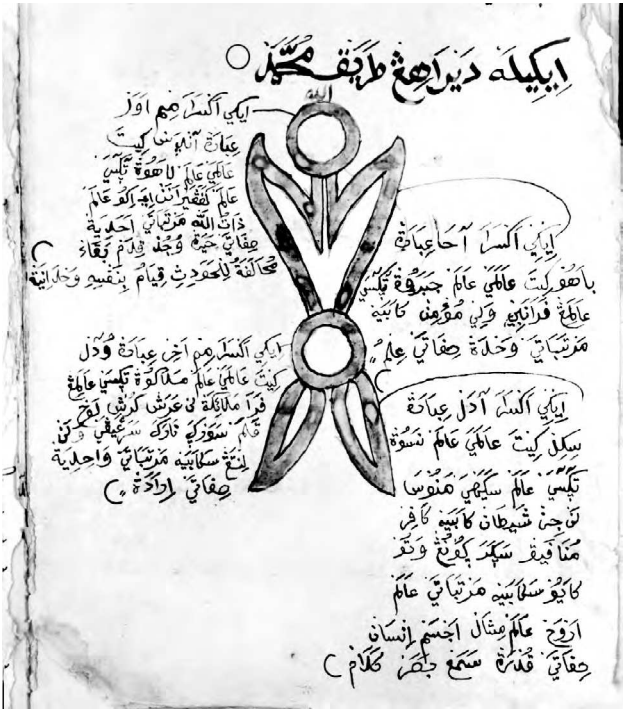 ايكيله ديراهڠ طريق محمد
الله
ايكي اكسرا ميم اول
عبارة كيت
عالمي عالم لاهوة تكسي
عالم كفقيرانن عالم
ذات الله مرتباتي احدية
صفاتي حيوة وجد قدم بقاء
مخالفة للحودث قيام بنفسه وحدانية
ايكي اكسرا آحا عبارة
باهو كيت عالمي عالم جبروة تكسي
عالمڠ فرانبي ولي مؤمن كابيه
مرتباتي وحدة صفاتي علم
ايكي اكسرا ميم آخر عبارة ودل
كيت عالمي عالم ملاكوة تكسي عالمڠ
فرا ملائكة لن عرش كرسي لوح
قلم سورك نارك ولن
لنتڠ سكابيه مرتباتي واحدية
صفاتي ارادة
ايكي اكسرا آدل عبارة
سكل كيت عالمي عالم نسوة
تكسي عالم سكهي منوسا
لن جن شيطان كابيه كافر
منافيق كونڠ وتو
كايو سكابيه مرتباتي عالم
اروح عالم مثال اجسم انسان
صفاتي قدرة سمع بصر كلام